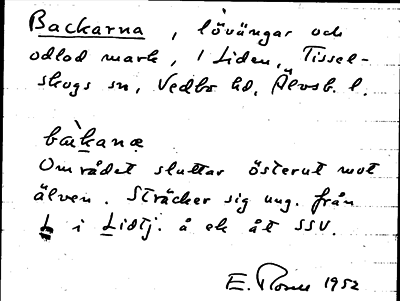 Backarna, lövängar och
odlad mark, 1 Liden, Tissel-
skogs sn, Vedbo hd, Älvsb. l.
bàkanæ
Området sluttar österut mot
älven. Sträcker sig ung. från
L i Lidtj. å ek åt SSV.
E. 1952